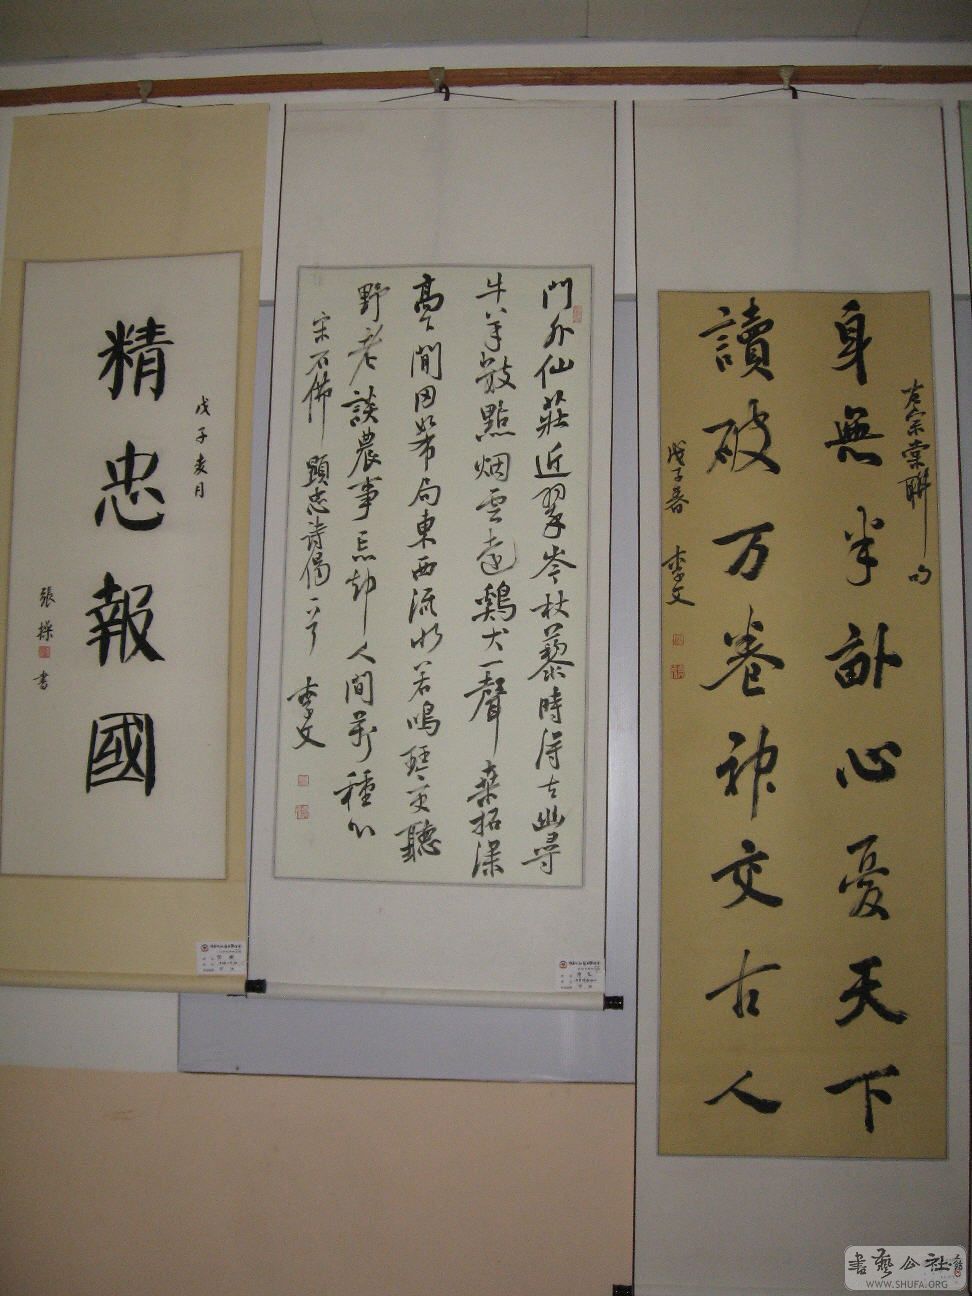 左宗棠聯句
身無半畝心憂天下
讀破万卷神交古人
戊子春 李文
門外仙莊近翠岑杖藜時得去幽尋
牛羊散點烟雲遠鷄犬一聲桑柘深
高下閒田如布局東西流水若鳴琴更聽
野老談農事忘却人間萬種心
宋石佛 顯忠詩偈一首 李文
戊子夏月
精忠報國
張操書
書藝公社
WWW.SHUFA.ORG